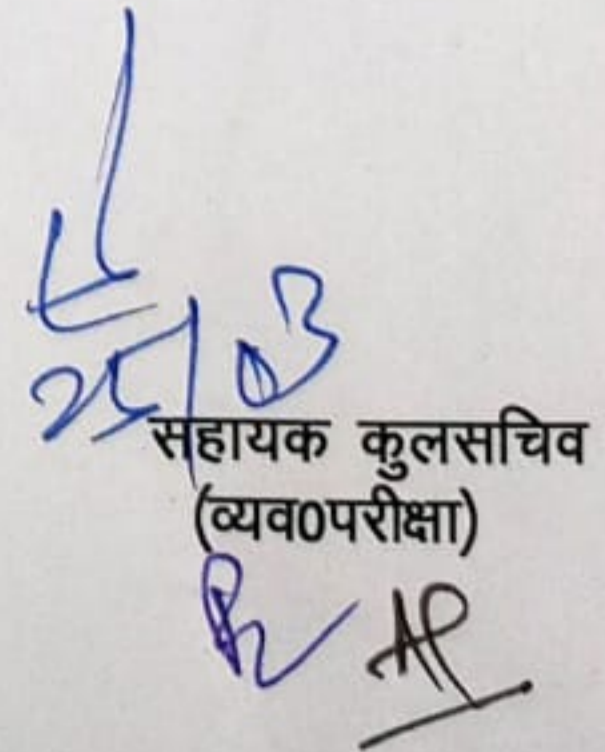 25/03
सहायक कुलसचिव
(व्यव0परीक्षा)
AP